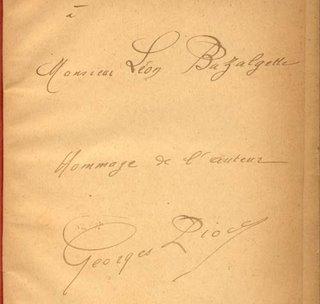 à
Monsieur Léon Bazalgette
Hommage de l'auteur
Georges Pioch